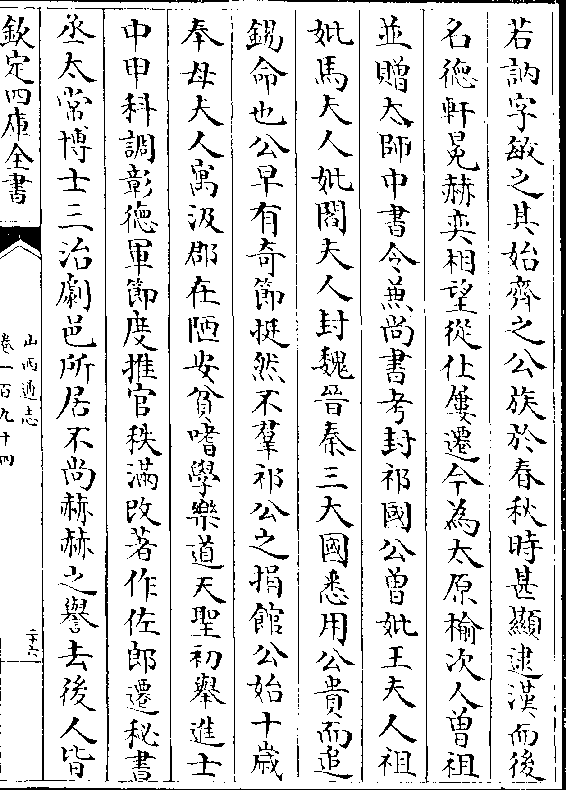 若訥字敏之其始齊之公族於春秋時甚顯逮漢而後
名德軒冕赫奕相望從仕屢遷今為太原榆次人曾祖
並贈太師中書令兼尚書考封祁國公曾妣王夫人祖
妣馬夫人妣閻夫人封魏晉秦三大國悉用公貴而追
錫命也公早有奇節挺然不羣祁公之捐館公始十歲
奉母夫人寓汲郡在陋安貧嗜學樂道天聖初舉進士
中甲科調彰德軍節度推官秩滿改著作佐郎遷秘書
丞太常博士三治劇邑所居不尚赫赫之譽去後人皆
欽定四庫全書
山西通志
卷一百九十四
二十六